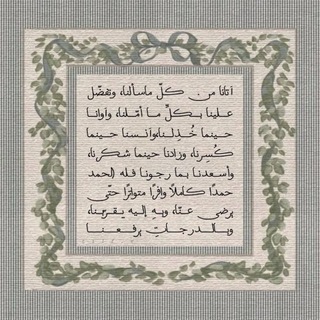 آتانا من كلّ ماسألنا، وتفضّل
علينا بكلِّ ما أمّلنا، وآوانا
حينما خُذِلنا، وآنسنا حينما
كُسِرنا، وزادنا حينما شكرنا،
وأسعدنا بما رجونا فله الحمد
حمدًا كاملًا وافرًا متواترًا حتّى
يرضى عنّا، وبهِ إليه يقرّبنا،
وبالدرجاتِ يرفعنا